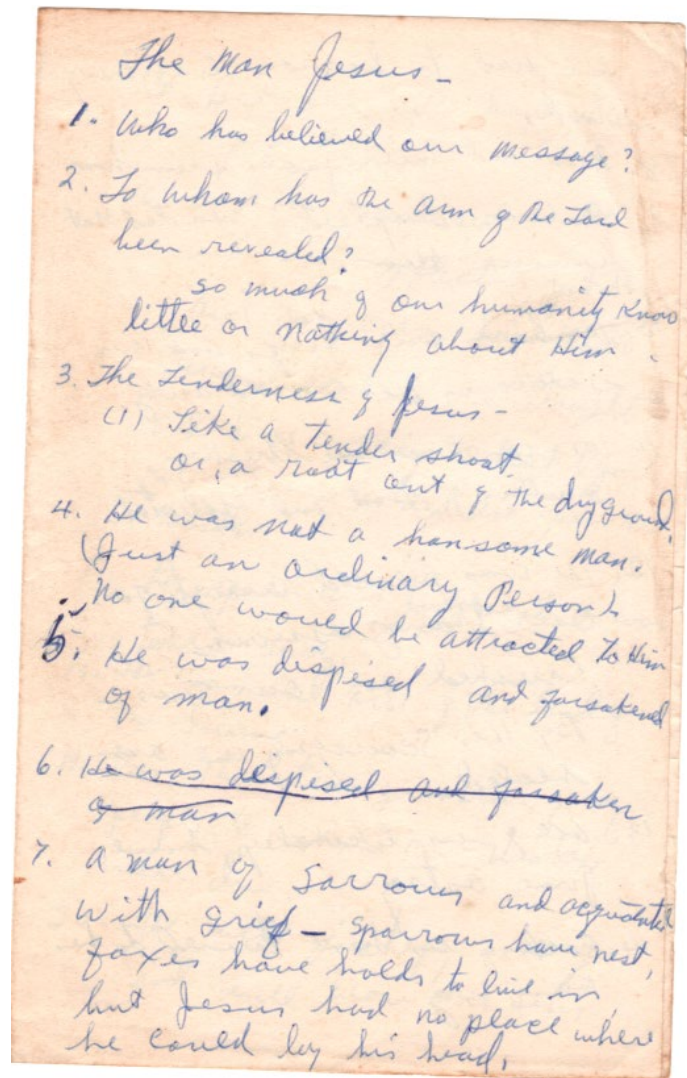 The Man Jesus -
1. Who has believed our message?
2. To whom has the arm of the Lord
been revealed?
so much of our humanity know
little or nothing about Him.
3. The Tenderness of Jesus -
(1) Like a tender shoot
or, a root out of the dry ground.
4. He was not a hansome man.
(Just an ordinary Person).
No one would be attracted to Him
5. He was dispised and forsakened
of man.
6. He was despised and forsaken
of man
7. A man of Sorrows and acquainted
with grief - sparrows have nest,
foxes have holds to live in,
but Jesus had no place where
he could lay his head.